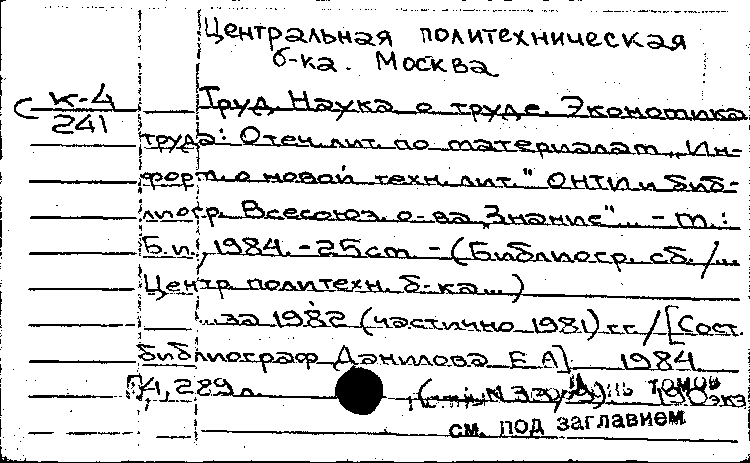 Центральная политехническая
б-ка. Москва
К-4
241
Труд. Наука о труде. Экономика
труда: Отеч. лит. по материалам „Ин-
форм. о новой техн. лит." ОНТИ и биб-
лиогр. Всесоюз. о-ва „Знание"... - М.:
Б.и., 1984. - 25см. - (Библиогр. сб. /...
Центр политехн. б-ка...)
...за 1982 (частично 1981) гг / [Сост.
библиограф Данилова Е.А] 1984
289 л. экз
см. под заглавием